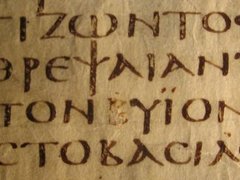 ΓΙΖΩΝΤΟ
ΘΡΕΨΑΙΑΝΤ
ΤΟΝΥΪΟΝ
CΤΟΒΑCΙΛ